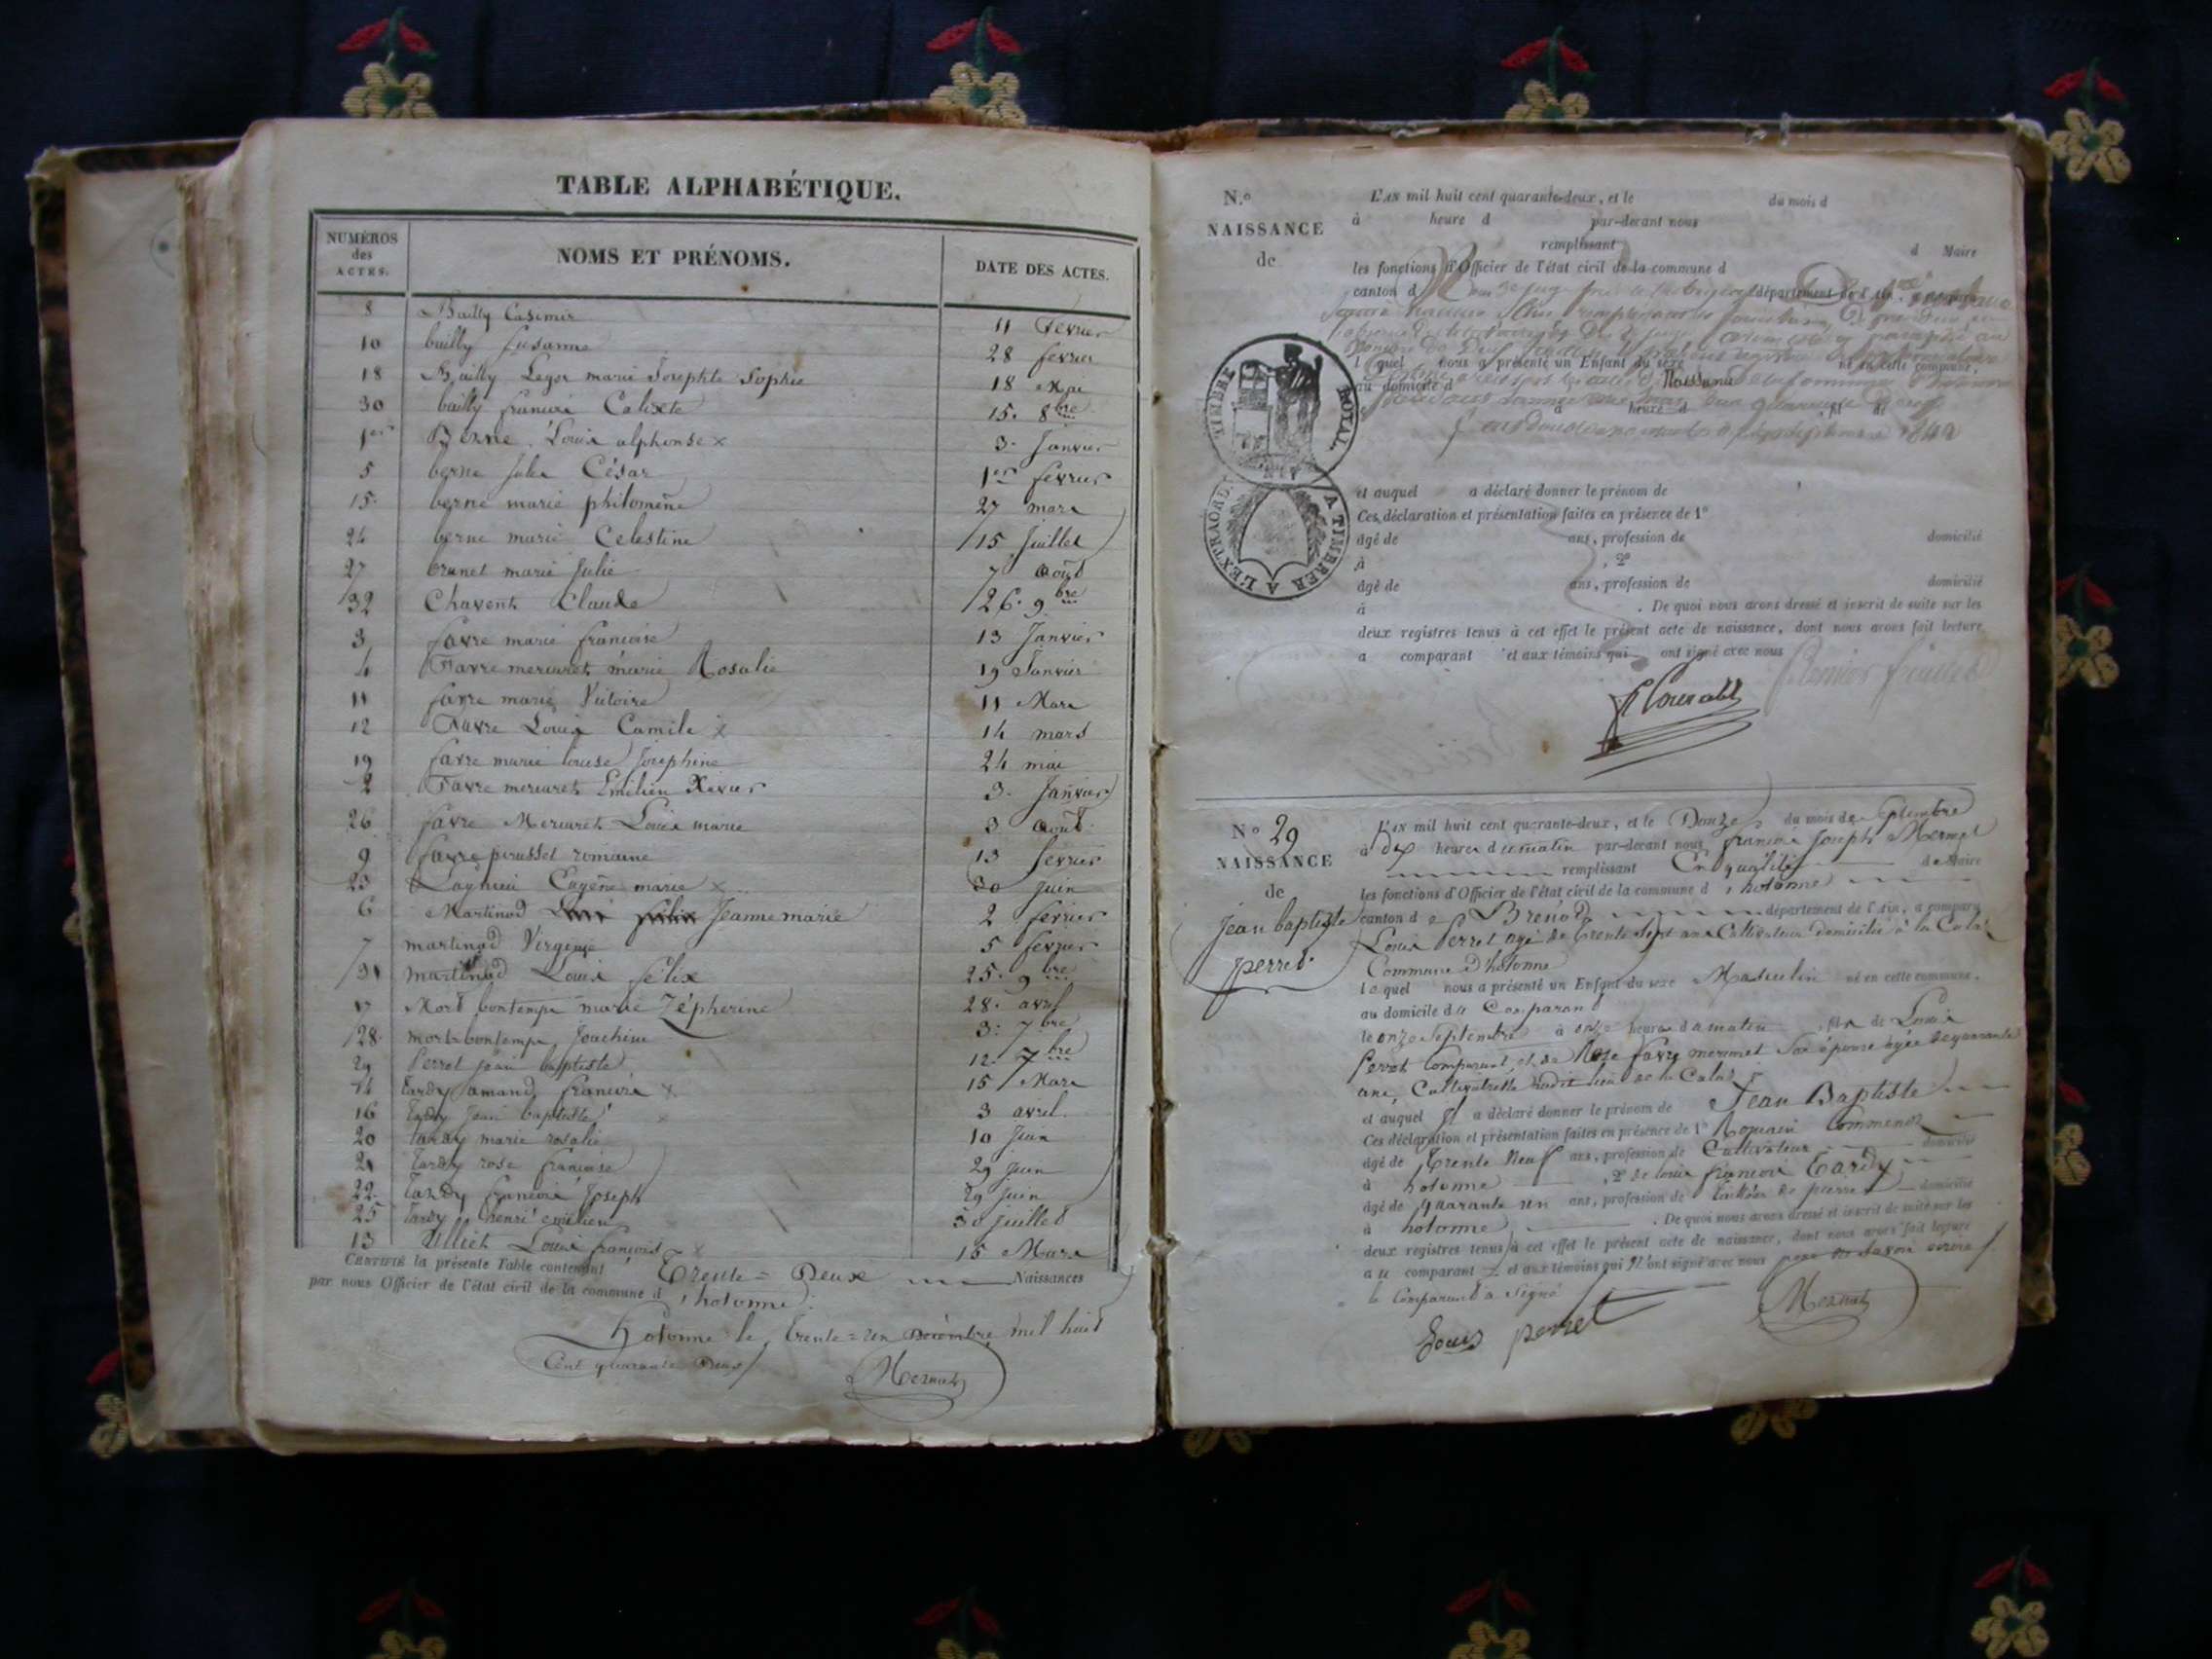 TABLE ALPHABÉTIQUE.
NUMÉROS des ACTES. NOMS ET PRÉNOMS. DATE DES ACTES.
8 Bailly Casimir 11 Fevrier
10 bailly Susanne 28 fevrier
18 Bailly Leger marie Josephte Sophie 18 Mai
30 bailly francois Calixte 15. 8bre
1er Berne Louis alphonse x 3. Janvier
5 berne Jules César 1er fevrier
15. berne marie philomène 27 mars
24 berne marie Celestine 15 Juillet
27 brunet marie Julie 7 août
32 Chavent Claude 26. 9bre
3 favre marie francoise 13 Janvier
4 Favre mercuret marie Rosalie 19 Janvier
11 favre marie Victoire 11 Mars
12 Favre Louis Camile x 14 mars
19 favre marie louise Josephine 24 mai
2 Favre mercuret Emilien Xavier 3. Janvier
26 favre Mercuret Louis marie 3 août
9 favre perussel romaine 13 fevrier
23 Lagnieu Eugène marie x 30 Juin
6 Martinod Jeanne marie 2 fevrier
7 martinod Virginie 5 fevrier
31 martinod Louis felix 25. 9bre
17 Mort bontemps marie Zépherine 28. avril
28. mort bontemps Joachim 3. 7bre
29 Perret jean baptiste 12. 7bre
14 tardy amand francois x 15 Mars
16 tardy Jean baptiste x 3 avril.
20 tardy marie rosalie 10 Juin
21 tardy rose francoise 29 juin
22. tardy francois Joseph 29 Juin
25 tardy henri emilien 30 juillet
13 Ulliet Louis francois x 15 Mars
CERTIFIÉ la présente Table contenant Trente = Deux Naissances
par nous Officier de l'état civil de la commune d'hotonne.
hotonne le trente = un Décembre mil huit
Cent quarante Deux
Mermet
N.° L'AN mil huit cent quarante-deux, et le du mois d
NAISSANCE à heure d par-devant nous
de remplissant d Maire
les fonctions d'Officier de l'état civil de la commune d
canton d département de l'Ain
l quel nous a présenté un Enfant du sexe né en cette commune,
au domicile d
à heure d , fil de
1842
TIMBRE ROYAL.
AIN
A TIMBRER A L'EXTRAORD.
et auquel a déclaré donner le prénom de
Ces déclaration et présentation faites en présence de 1°
âgé de ans, profession de domicilié
à , 2°
âgé de ans, profession de domicilié
à . De quoi nous avons dressé et inscrit de suite sur les
deux registres tenus à cet effet le présent acte de naissance, dont nous avons fait lecture
a comparant et aux témoins qui ont signé avec nous
N° 29 L'AN mil huit cent quarante-deux, et le Douze du mois de Septembre
NAISSANCE à dix heures du matin par-devant nous francois Joseph Mermet
remplissant En qualité de Maire
de les fonctions d'Officier de l'état civil de la commune d'hotonne
Jean baptiste canton de Brenod département de l'Ain, a comparu
perret Louis Perret agé de trente Sept ans Cultivateur domicilié à la
Commune d'hotonne
lequel nous a présenté un Enfant du sexe Masculin né en cette commune,
au domicile du Comparant
le onze Septembre à onze heures du matin , fils de Louis
Perret Comparant, et de Rose favre mercuret Son épouse agée de quarante
ans, Cultivatrice
et auquel il a déclaré donner le prénom de Jean Baptiste
Ces déclaration et présentation faites en présence de 1° Romain
âgé de Trente Neuf ans, profession de Cultivateur domicilié
à hotonne , 2° de louis francois Tardy
âgé de quarante un ans, profession de tailleur de pierre domicilié
à hotonne . De quoi nous avons dressé et inscrit de suite sur les
deux registres tenus à cet effet le présent acte de naissance, dont nous avons fait lecture
au comparant et aux témoins qui n'ont signé avec nous pour ne Savoir ecrire
le Comparant a Signé
Louis perret Mermet